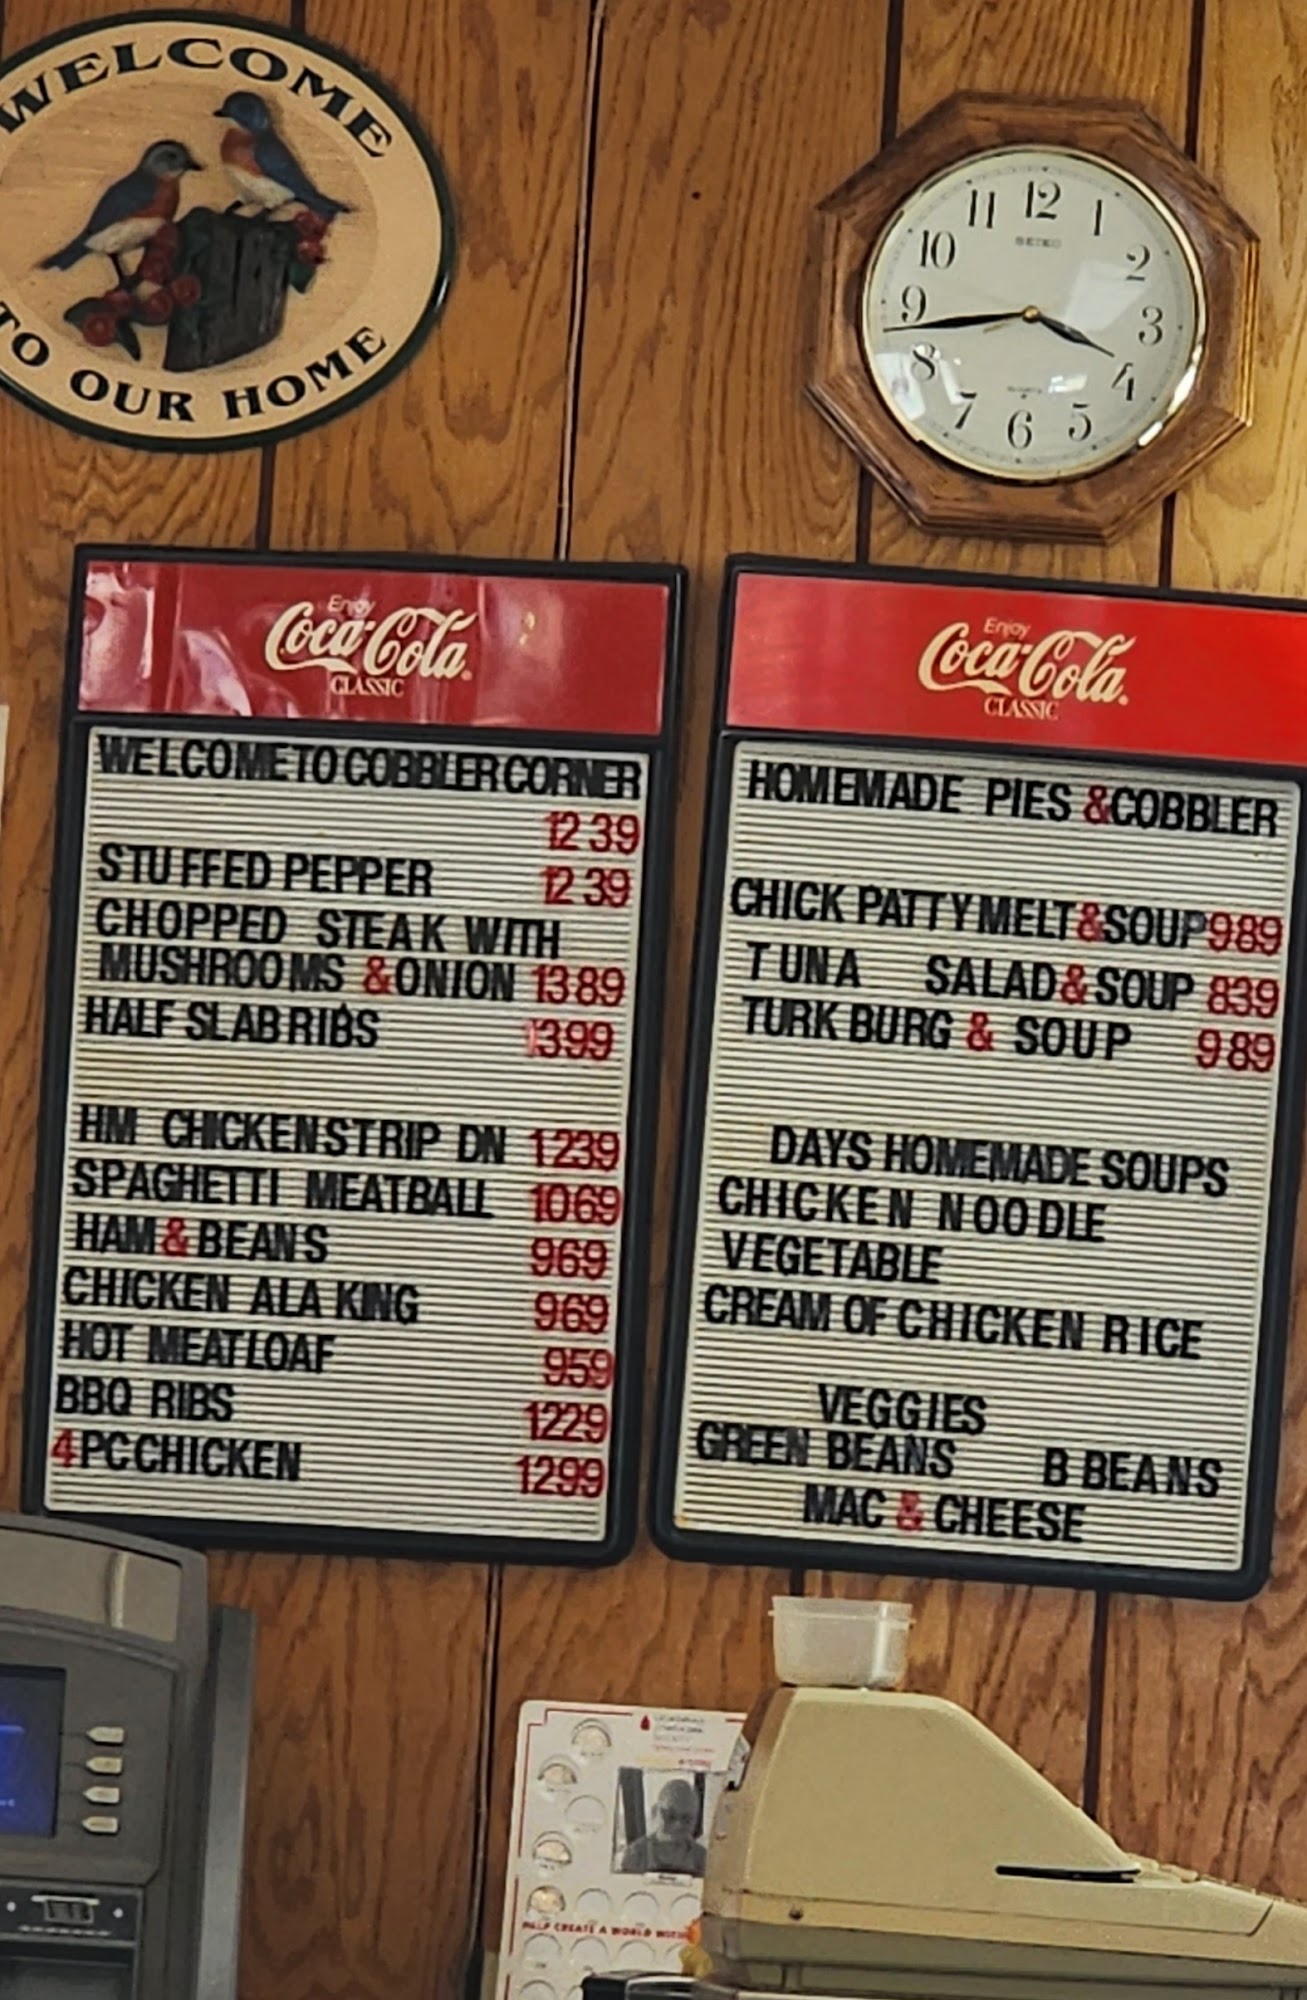 WELCOME
TO OUR HOME
12
11
1
10
2
SEIKO
9
3
8
4
7
5
6
Enjoy
Coca-Cola
CLASSIC
WELCOME TO COBBLER CORNER
12 39
STUFFED PEPPER 12 39
CHOPPED STEAK WITH
MUSHROOMS & ONION 1389
HALF SLAB RIBS 1399
HM CHICKEN STRIP DN 1239
SPAGHETTI MEATBALL 1069
HAM & BEANS 969
CHICKEN ALA KING 969
HOT MEATLOAF 959
BBQ RIBS 1229
4 PC CHICKEN 1299
Enjoy
Coca-Cola
CLASSIC
HOMEMADE PIES & COBBLER
CHICK PATTY MELT & SOUP 989
TUNA SALAD & SOUP 839
TURK BURG & SOUP 989
DAYS HOMEMADE SOUPS
CHICKEN NOODLE
VEGETABLE
CREAM OF CHICKEN RICE
VEGGIES
GREEN BEANS B BEANS
MAC & CHEESE
HELP CREATE A WORLD